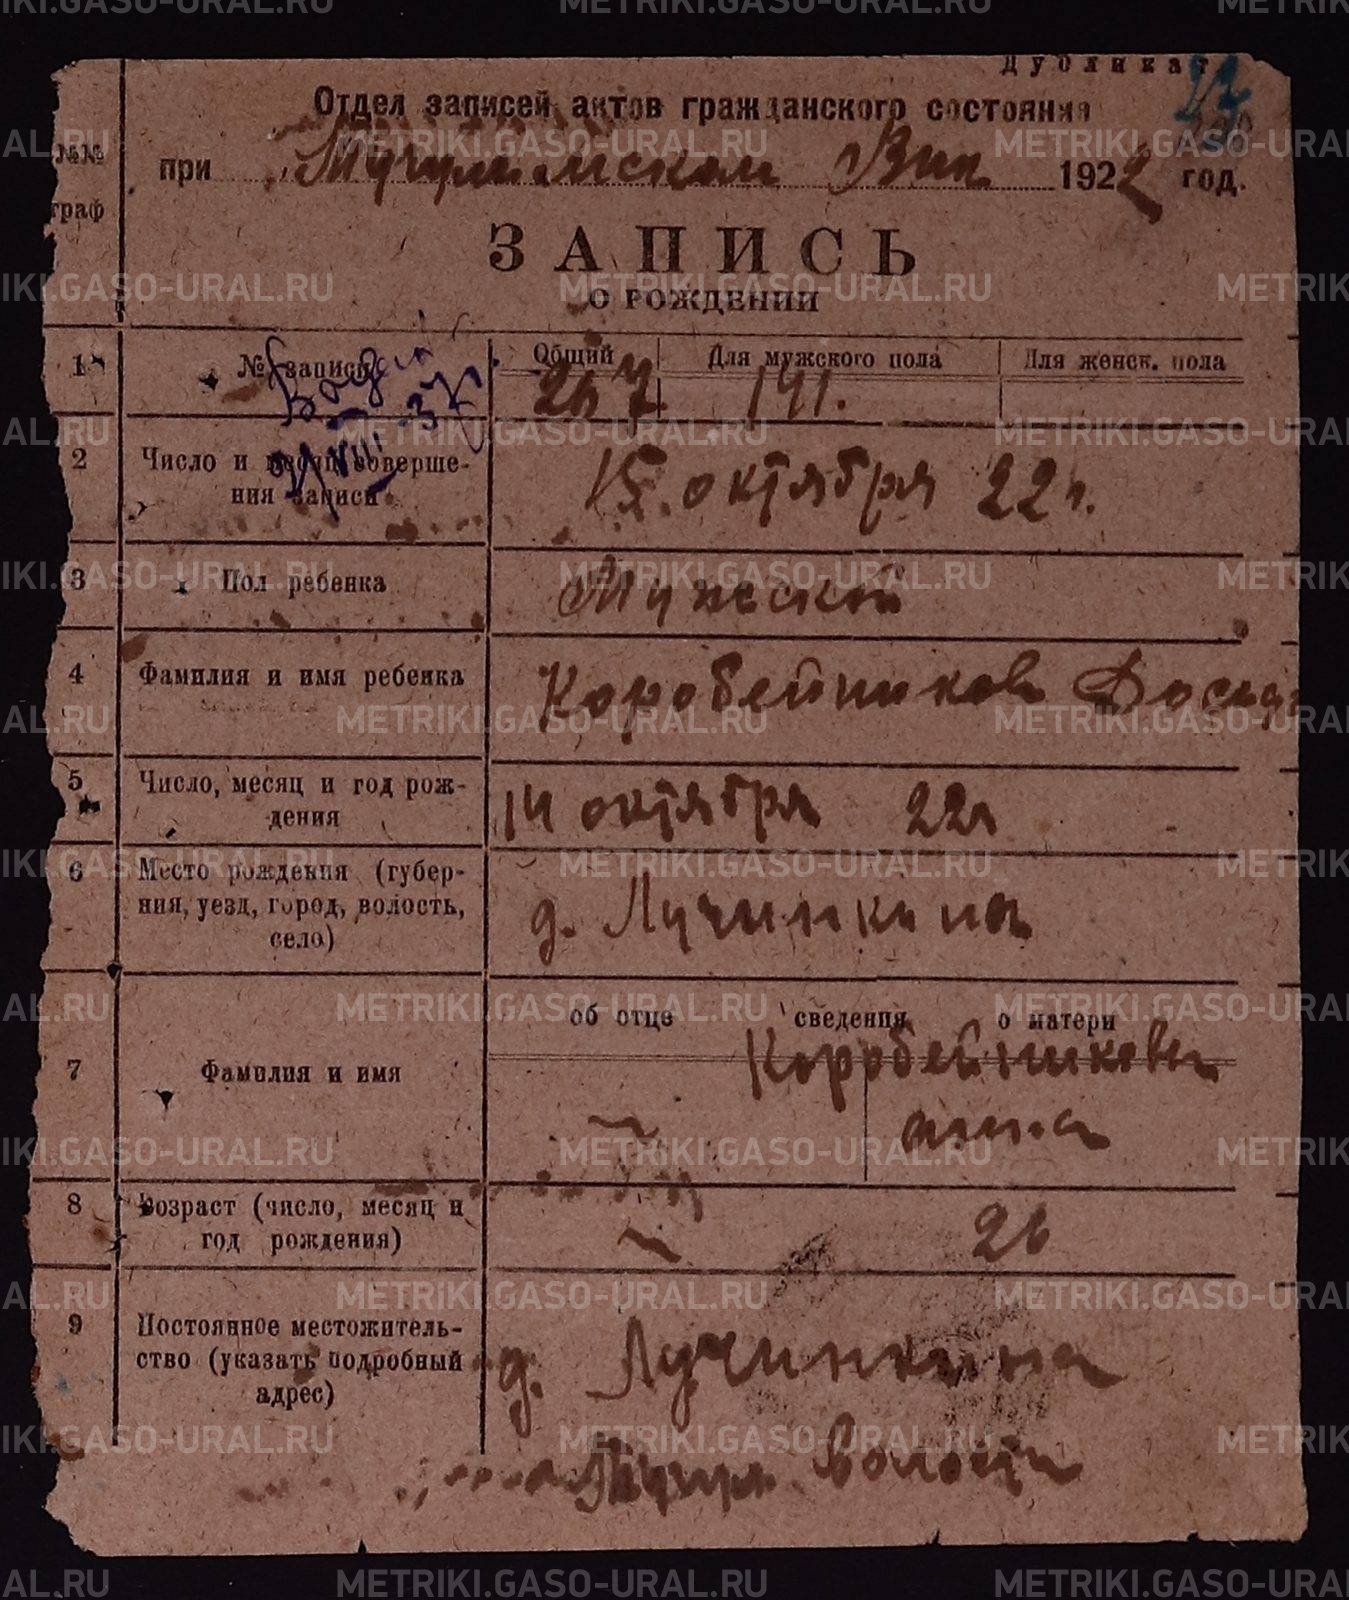 Дубликат
22
Отдел записей актов гражданского состояния
№№ граф
при Тугулымском Вик 1922 год.
ЗАПИСЬ
О РОЖДЕНИИ
1 № записи Общий Для мужского пола Для женск. пола
267 141.
VIII 37
2 Число и месяц соверше-
ния записи 15. октября 22 г.
3 Пол ребенка Мужской
4 Фамилия и имя ребенка Коробейников
5 Число, месяц и год рож-
дения 14 октября 22 г
6 Место рождения (губер-
ния, уезд, город, волость,
село) д. Лучинкина
об отце сведения о матери
7 Фамилия и имя Коробейникова
анна
8 Возраст (число, месяц и
год рождения) 26
9 Постоянное местожитель-
ство (указать подробный
адрес) д. Лучинкина
Тугул волости
METRIKI.GASO-URAL.RU